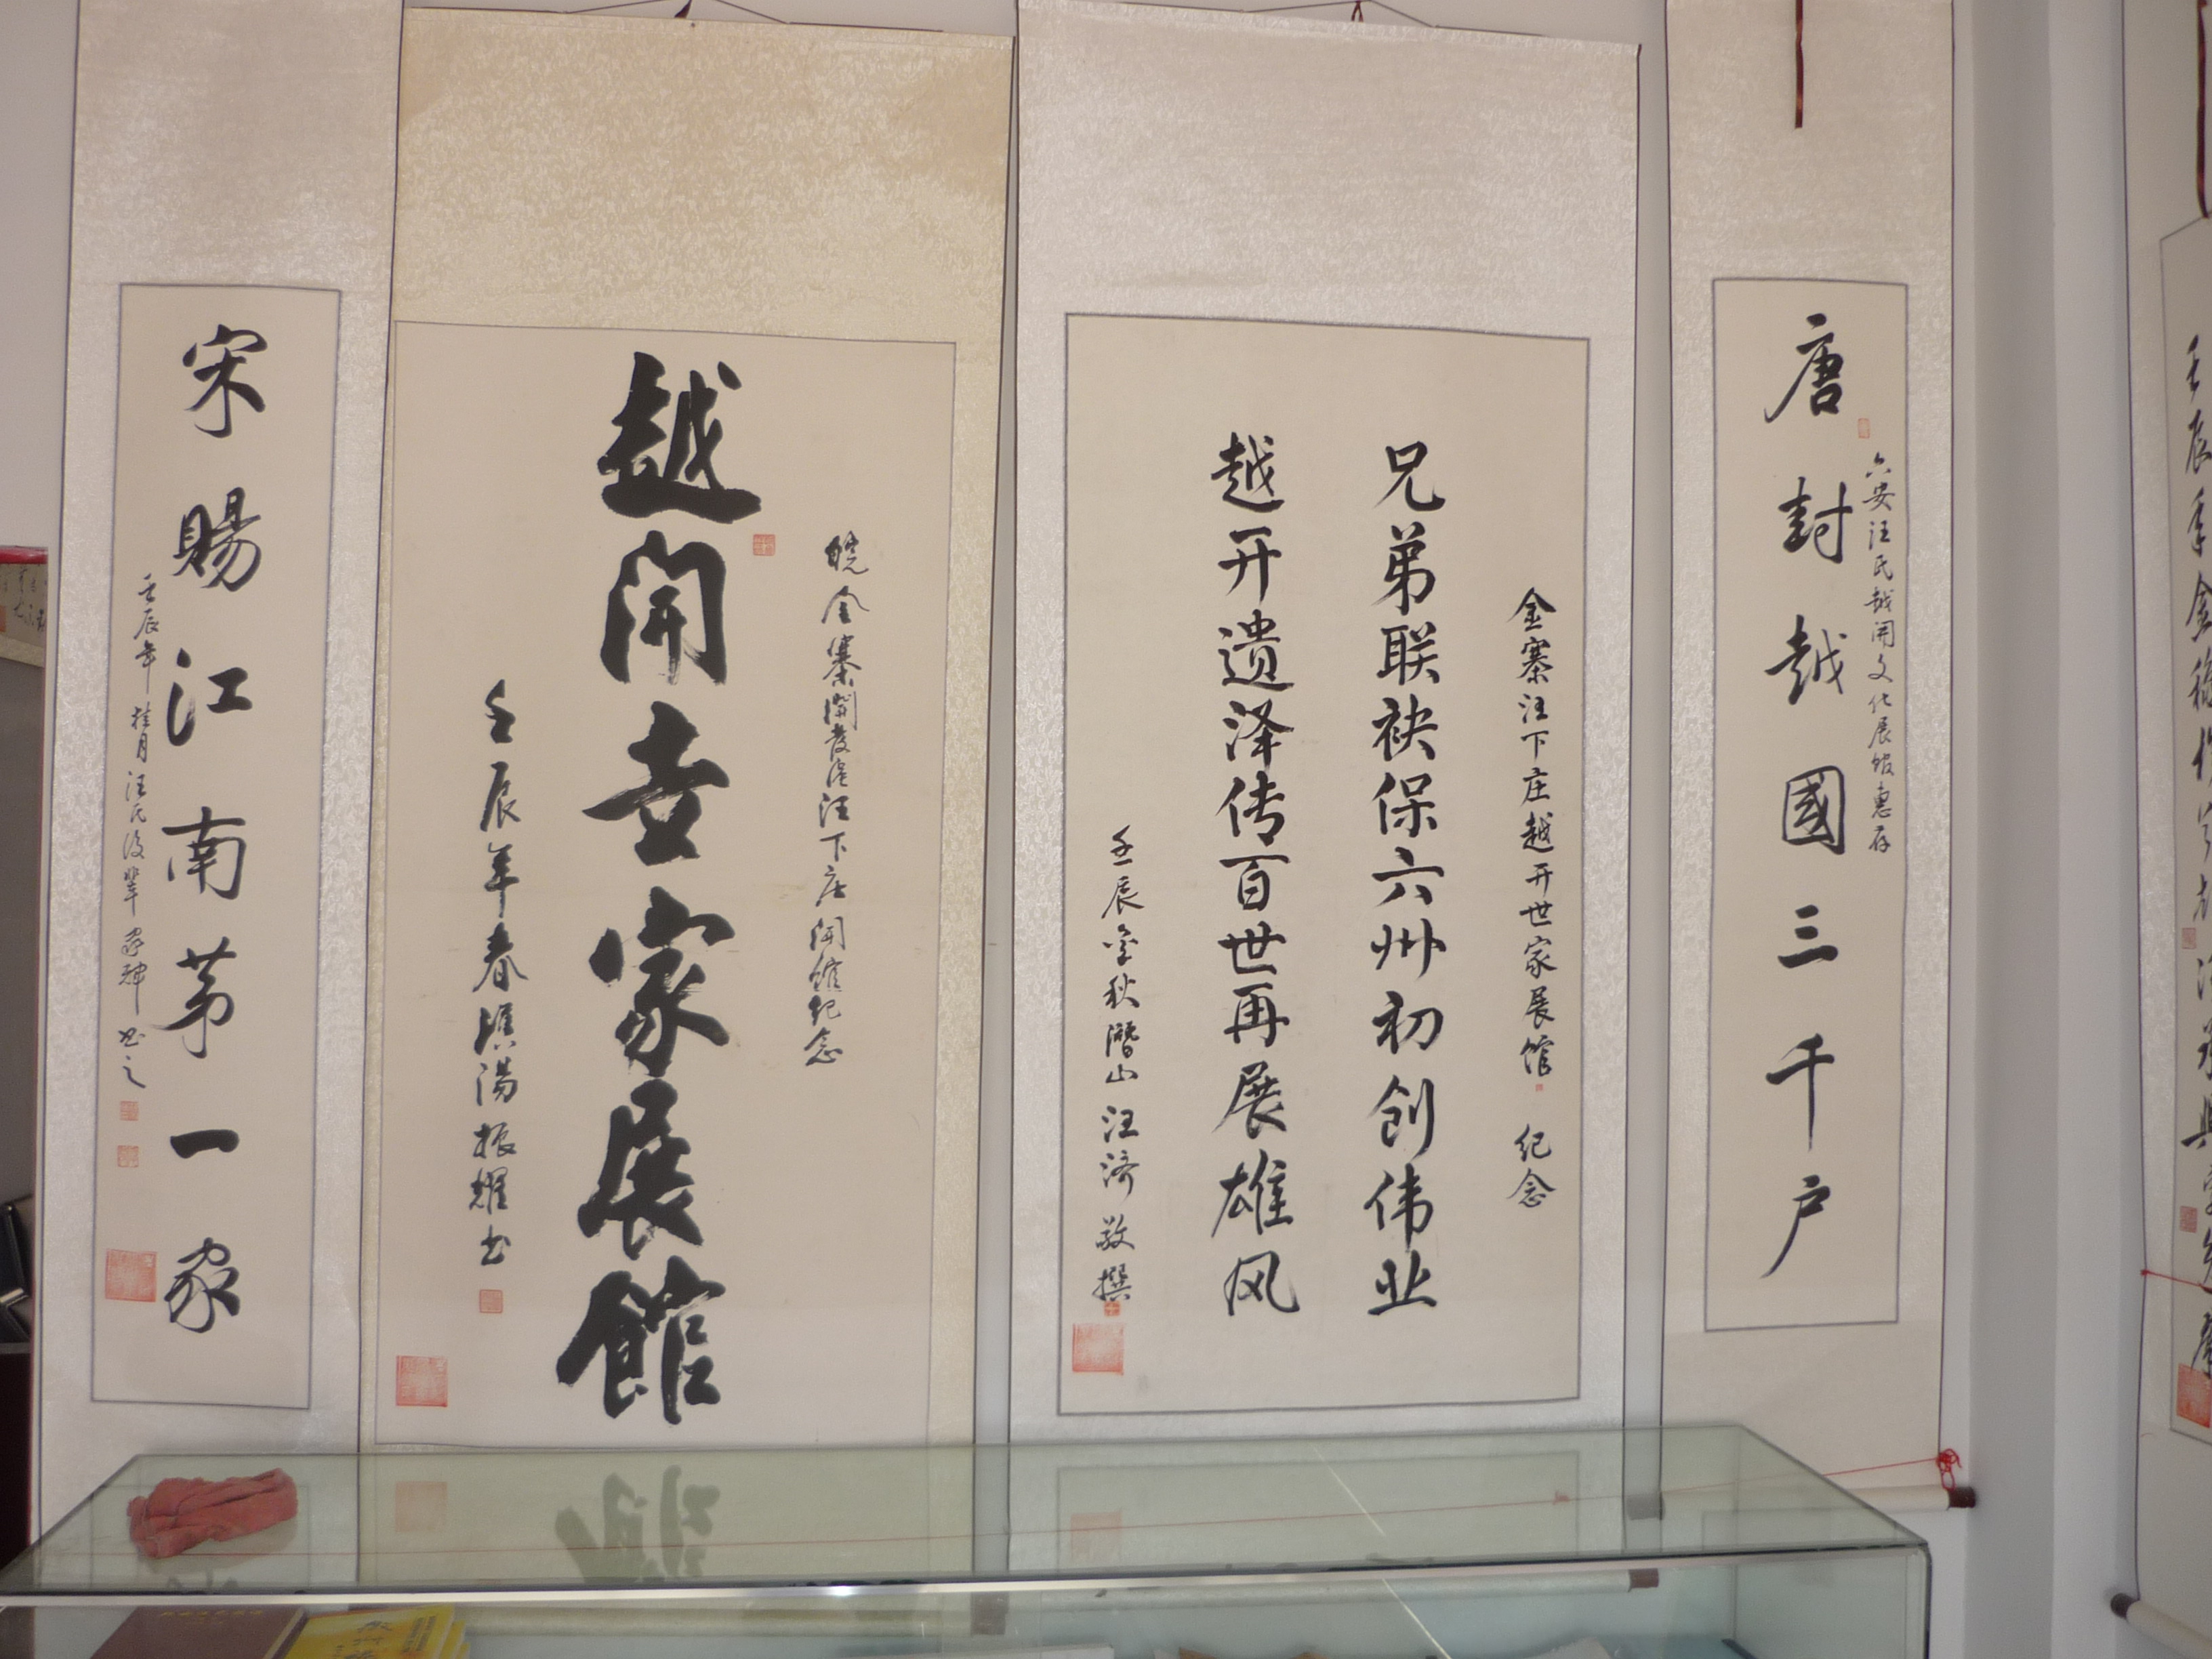 唐封越國三千户
六安汪氏越開文化展馆惠存
金寨汪下庄越开世家展馆 纪念
兄弟联袂保六州初创伟业
越开遗泽传百世再展雄风
壬辰金秋潛山汪济敬撰
皖金寨開發區汪下庄開館纪念
越開世家展館
壬辰年春 湯振耀书
宋賜江南苐一家
壬辰年桂月汪氏後輩 书之